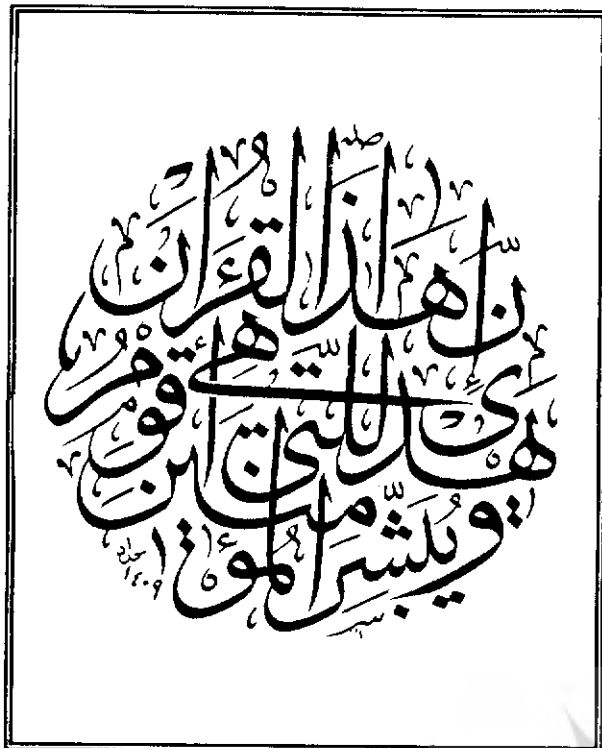 إِنَّ هَذَا القُرْآنَ
يَهْدِي لِلَّتِي هِيَ أَقْوَمُ
وَيُبَشِّرُ المُؤْمِنِينَ
١٤٠٩